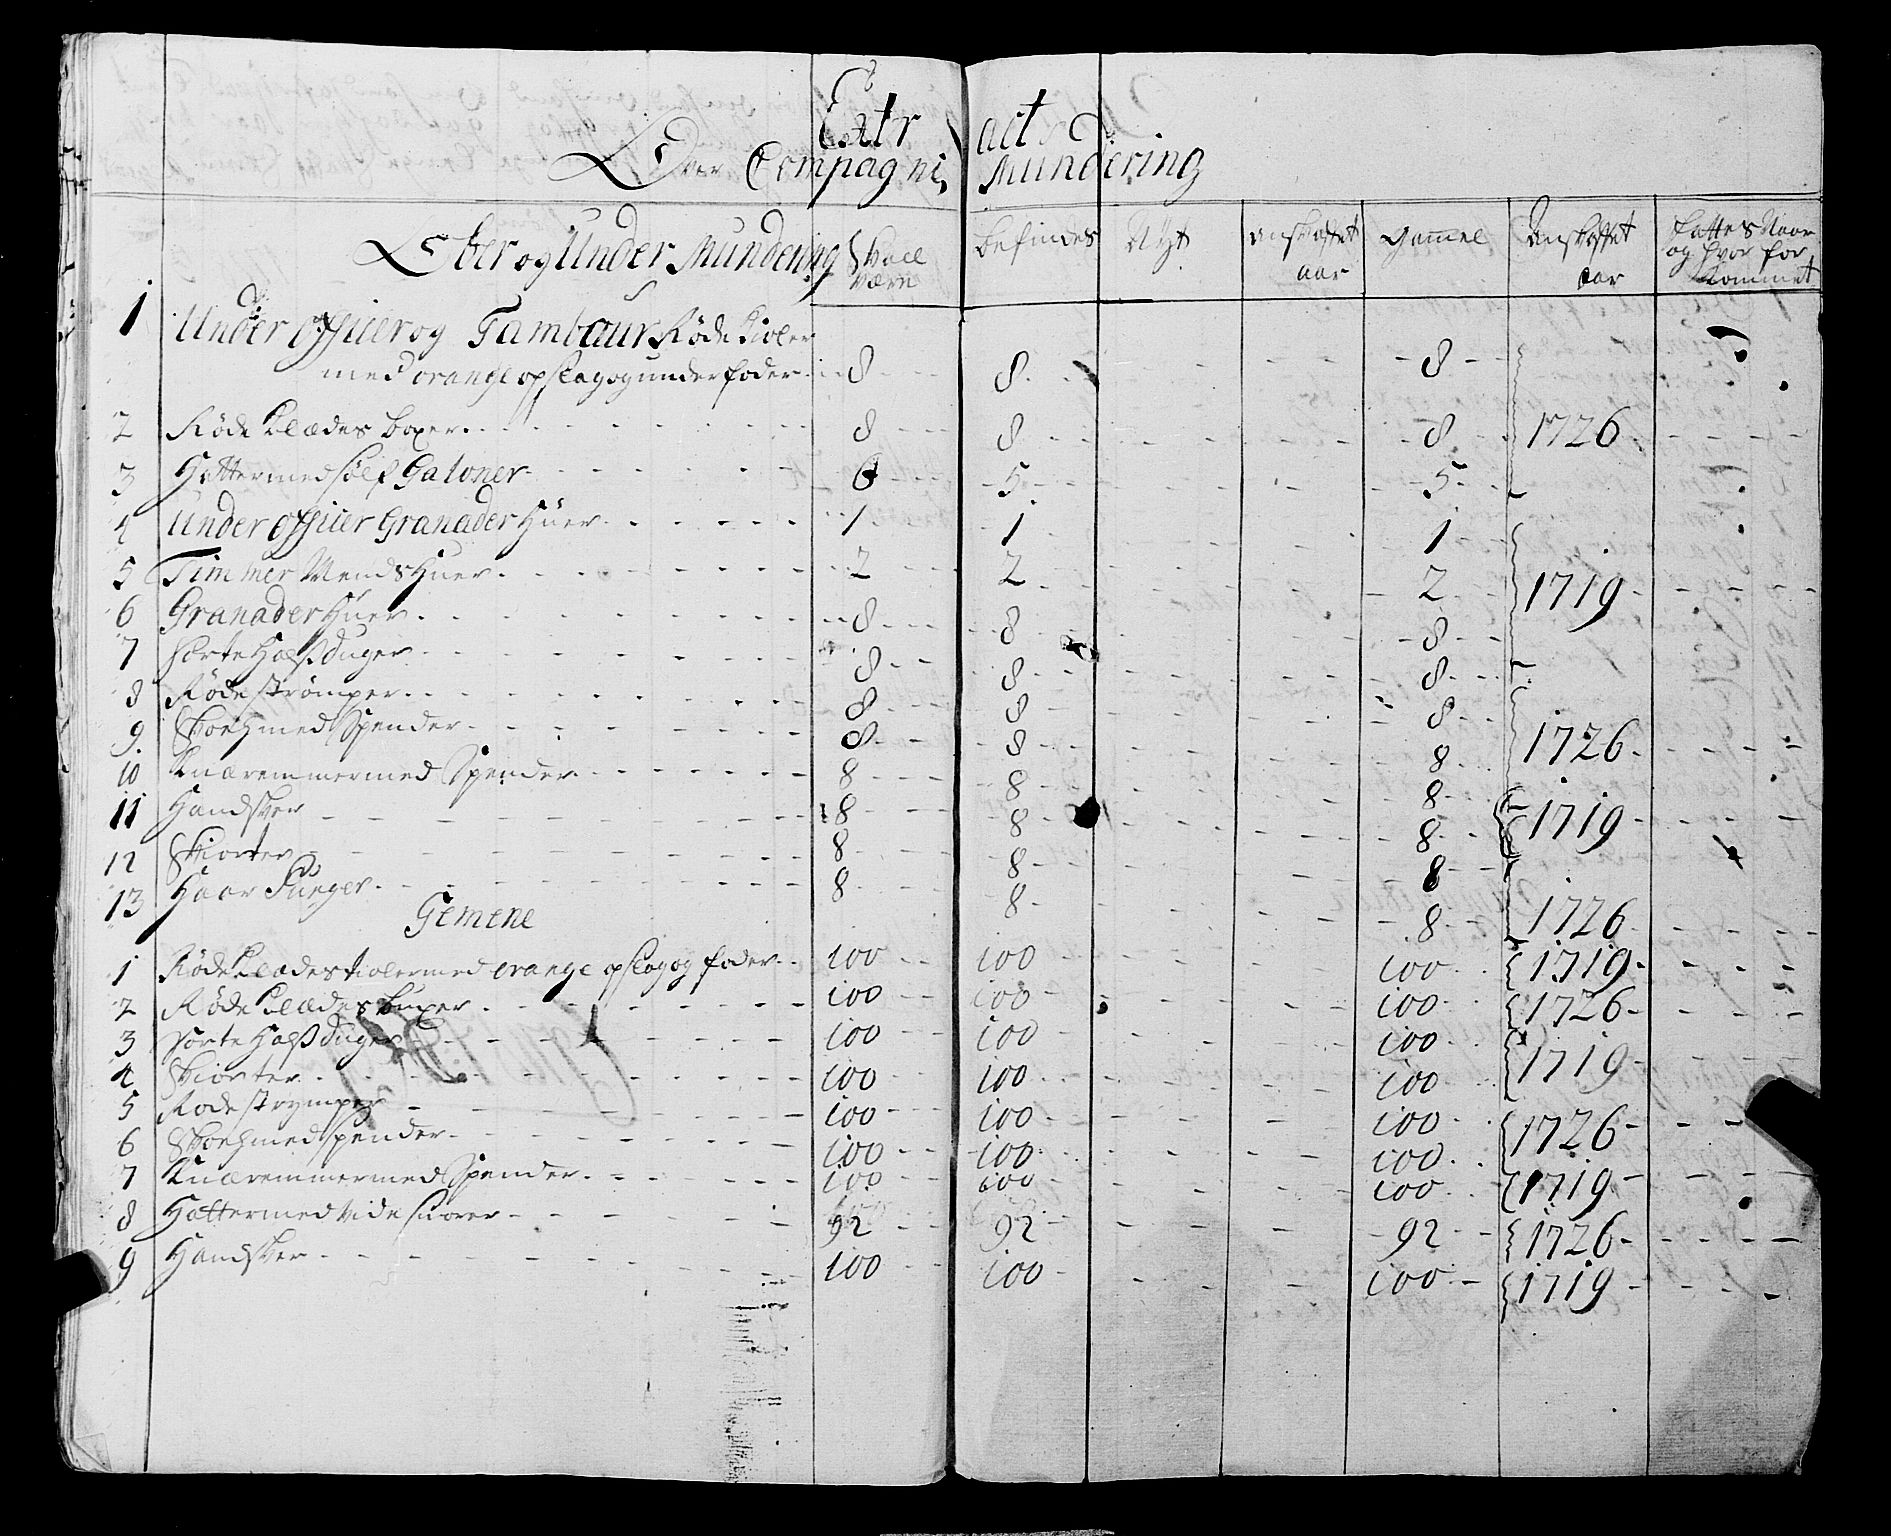 Extract
Over Compagni, Mundering
Ober og Under Mundering Skall være befindes Nyt anskaffet aar gammel Anskaffet aar fattes Naar og hvor for kommet
1 Under officier og Tambour Røde Kioler
med orange opslag og underfoder 8 8 8
2 Røde Klædes boxer 8 8 8 1726
3 Hatter med sølf Galoner 6 5 5
4 Under officier Granader Huer 1 1 1
5 Timmer Mends Huer 2 2 2 1719
6 Granader Huer 8 8 8
7 sorte Halsduger 8 8 8
8 Røde strømper 8 8 8
9 Skoe med Spender 8 8 8 1726
10 Knæremmer med Spender 8 8 8
11 Handsker 8 8 8 1719
12 Skiorter 8 8 8
13 Haar Punger 8 8 8 1726
Gemene
1 Røde Klædes kioler med orange opslag og foder 100 100 100 1719
2 Røde Klædes buxer 100 100 100 1726
3 sorte Halsduger 100 100 100
4 Skiorter 100 100 100 1719
5 Røde strymper 100 100 100
6 Skoe med spender 100 100 100 1726
7 Knæremmer med Spender 100 100 100 1719
8 Hatter med vide snorer 92 92 92 1726
9 Handsker 100 100 100 1719